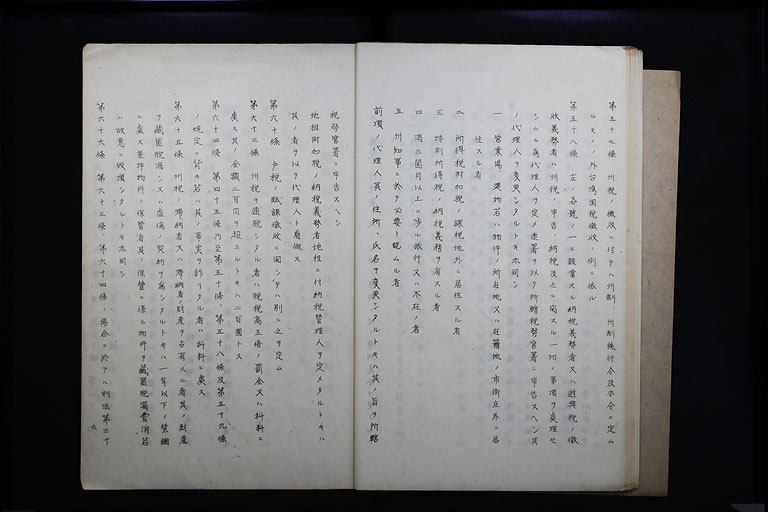 第五十七條 州税ノ徴收ニ付テハ州制、州制施行令及本令ニ定ム
ルモノノ外台湾国税徴收ノ例ニ依ル
第五十八條 左ノ各號ノ一ニ該當スル納税義務者又ハ遊興税ノ徴
收義務者ハ州税ノ申告、納税及之ニ関スル一切ノ事項ヲ處理セ
シムル為代理人ヲ定メ連署ヲ以テ所轄税務官署ニ申告スヘシ其
ノ代理人ヲ変更シタルトキ亦同シ
一 営業場、建物若ハ物件ノ所在地又ハ在籍地ノ市街庄外ニ居
住スル者
二 所得税附加税ノ課税地外ニ居住スル者
三 特別所得税ノ納税義務ヲ有スル者
四 満三箇月以上ニ渉ル旅行又ハ不在ノ者
五 州知事ニ於テ必要ト認ムル者
前項ノ代理人其ノ住所、氏名ヲ変更シタルトキハ其ノ旨ヲ所轄
税務官署ニ申告スヘシ
地租附加税ノ納税義務者地租ニ付納税管理人ヲ定メタルトキハ
其ノ者ヲ以テ代理人ト看做ス
第六十條 戸税ノ賦課徴收ニ関シテハ別ニ之ヲ定ム
第六十三條 州税ヲ逋脱シタル者ハ脱税高五倍ノ罰金又ハ科料ニ
處ス其ノ金額二百円ヲ超ユルトキハ二百圓トス
第六十四條 第四十五條乃至第五十條、第五十八條及第五十九條
ノ規定ニ背キ若ハ其ノ事実ヲ詐リタル者ハ科料ニ處ス
第六十五條 州税ノ滞納者又ハ滞納者ノ財産ヲ占有スル者其ノ財産
ヲ藏匿脱漏シ又ハ虚偽ノ契約ヲ為シタルトキハ一年以下ノ禁錮
ニ處ス差押物件ノ保管者其ノ保管ニ係ル物件ヲ藏匿脱漏費消若
ハ故意ニ毀損シタルトキ亦同シ
第六十六條 第六十三條、第六十四條ノ場合ニ於テハ刑法第三十
六